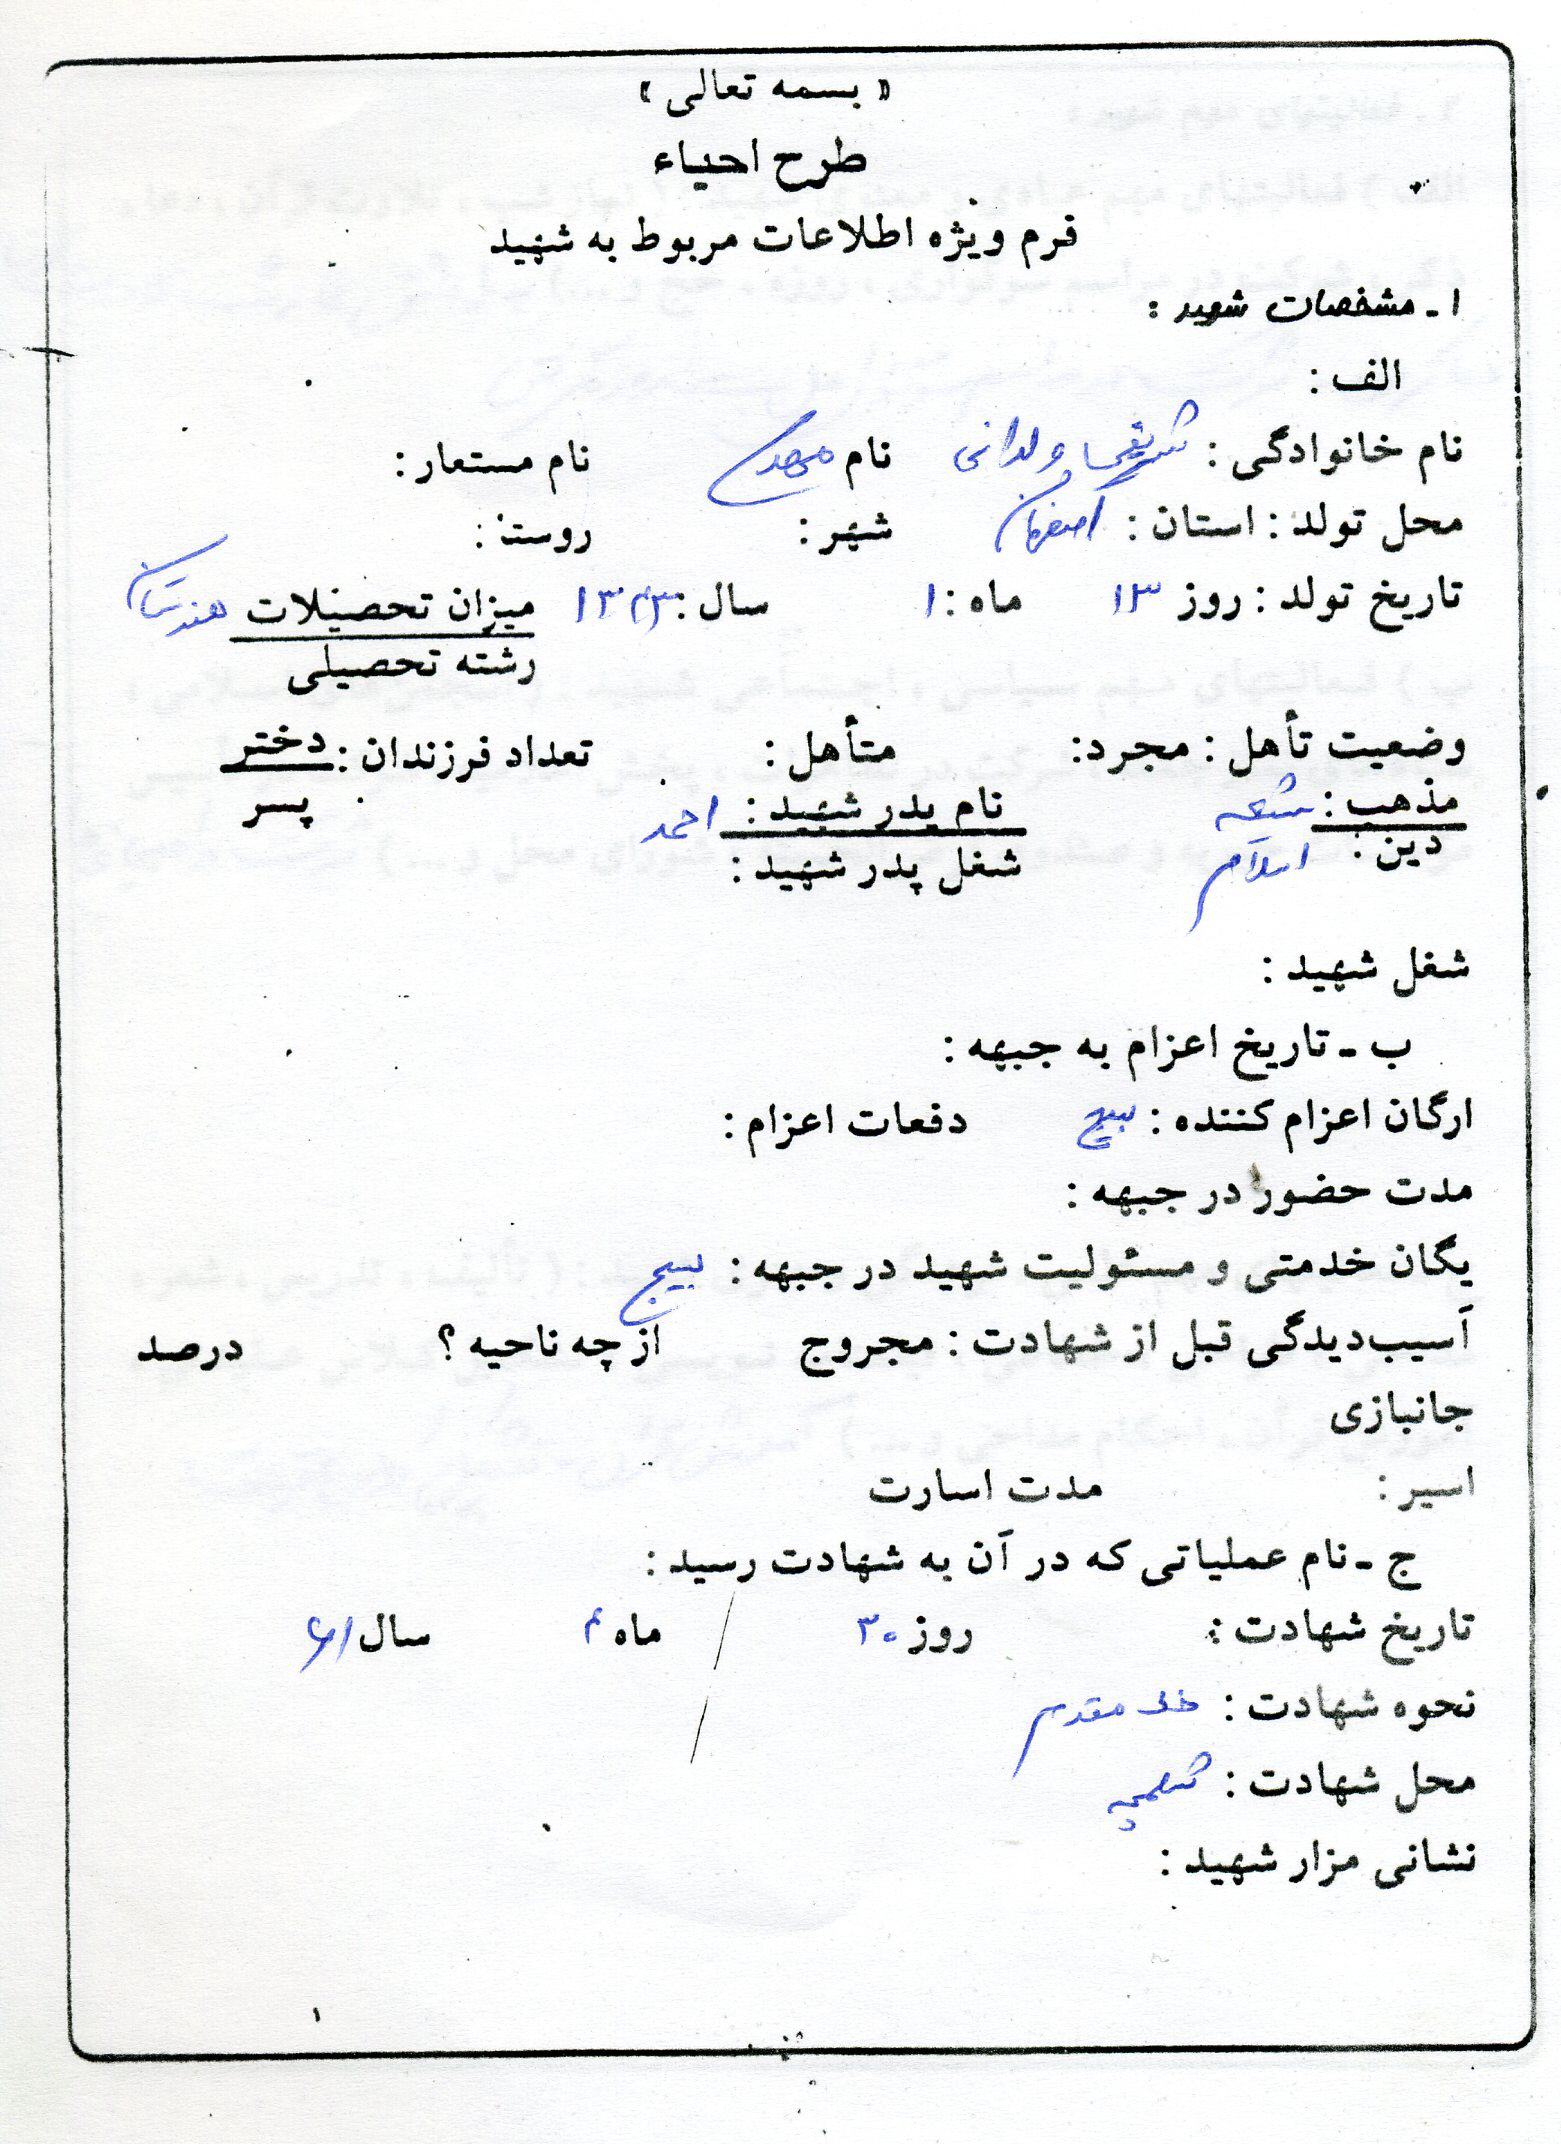 « بسمه تعالی »
طرح احیاء
فرم ویژه اطلاعات مربوط به شهید
۱ - مشخصات شهید :
الف :
نام خانوادگی : شریفی ولدانی نام مهدی نام مستعار :
محل تولد : استان : اصفهان شهر : روستا :
تاریخ تولد : روز ۱۳ ماه : ۱ سال : ۱۳۴۳ میزان تحصیلات
رشته تحصیلی
وضعیت تأهل : مجرد : متأهل : تعداد فرزندان : دختر
پسر
مذهب : شیعه نام پدر شهید : احمد
دین : اسلام شغل پدر شهید :
شغل شهید :
ب - تاریخ اعزام به جبهه :
ارگان اعزام کننده : بسیج دفعات اعزام :
مدت حضور در جبهه :
یگان خدمتی و مسئولیت شهید در جبهه : بسیج
آسیب‌دیدگی قبل از شهادت : مجروح از چه ناحیه ؟ درصد
جانبازی
اسیر : مدت اسارت
ج - نام عملیاتی که در آن به شهادت رسید :
تاریخ شهادت : روز ۳۰ ماه ۴ سال ۶۱
نحوه شهادت : خط مقدم
محل شهادت : شلمچه
نشانی مزار شهید :
۱